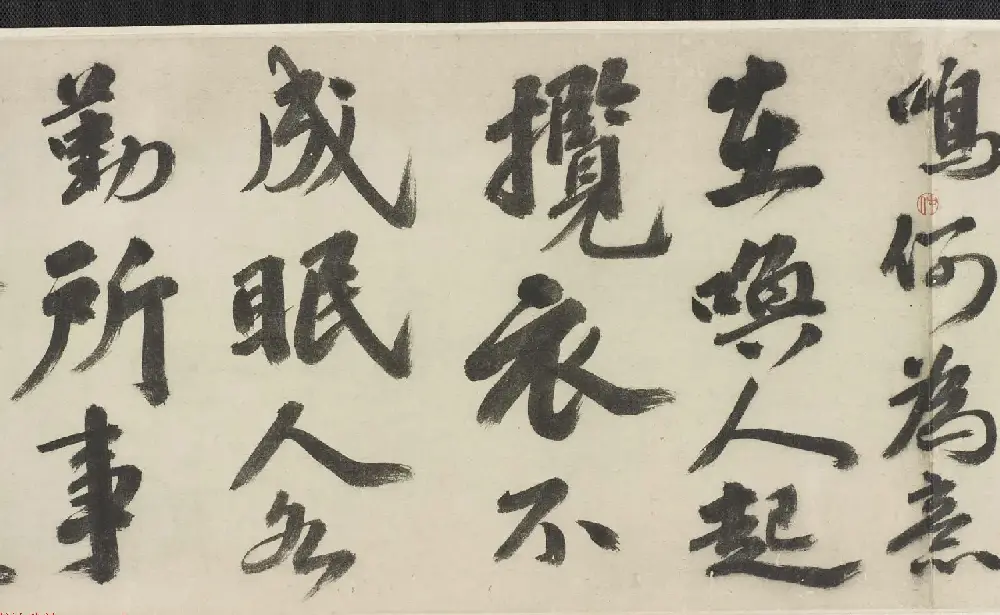 鳴何為意
在喚人起
攬衣不
成眠人各
勤所事